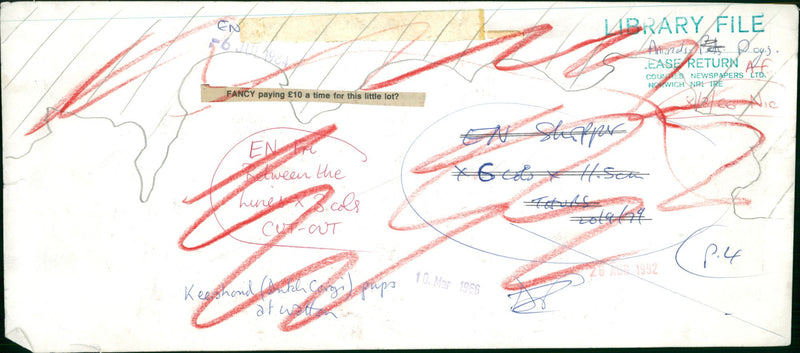 EN
-6 JUN 1984
LIBRARY FILE
Animals Pets Dogs.
EASE RETURN
COUNTIES NEWSPAPERS LTD.
NORWICH NR1 1RE
FANCY paying £10 a time for this little lot?
EN Fri
Between the
Lines x 3 cols
CUT-OUT
EN
x 6 cols x 11.5cm
20/9/79
P.4
Keeshond (Dutch Corgi) pups
at Watton
10. Mar 1986
26 AUG 1982